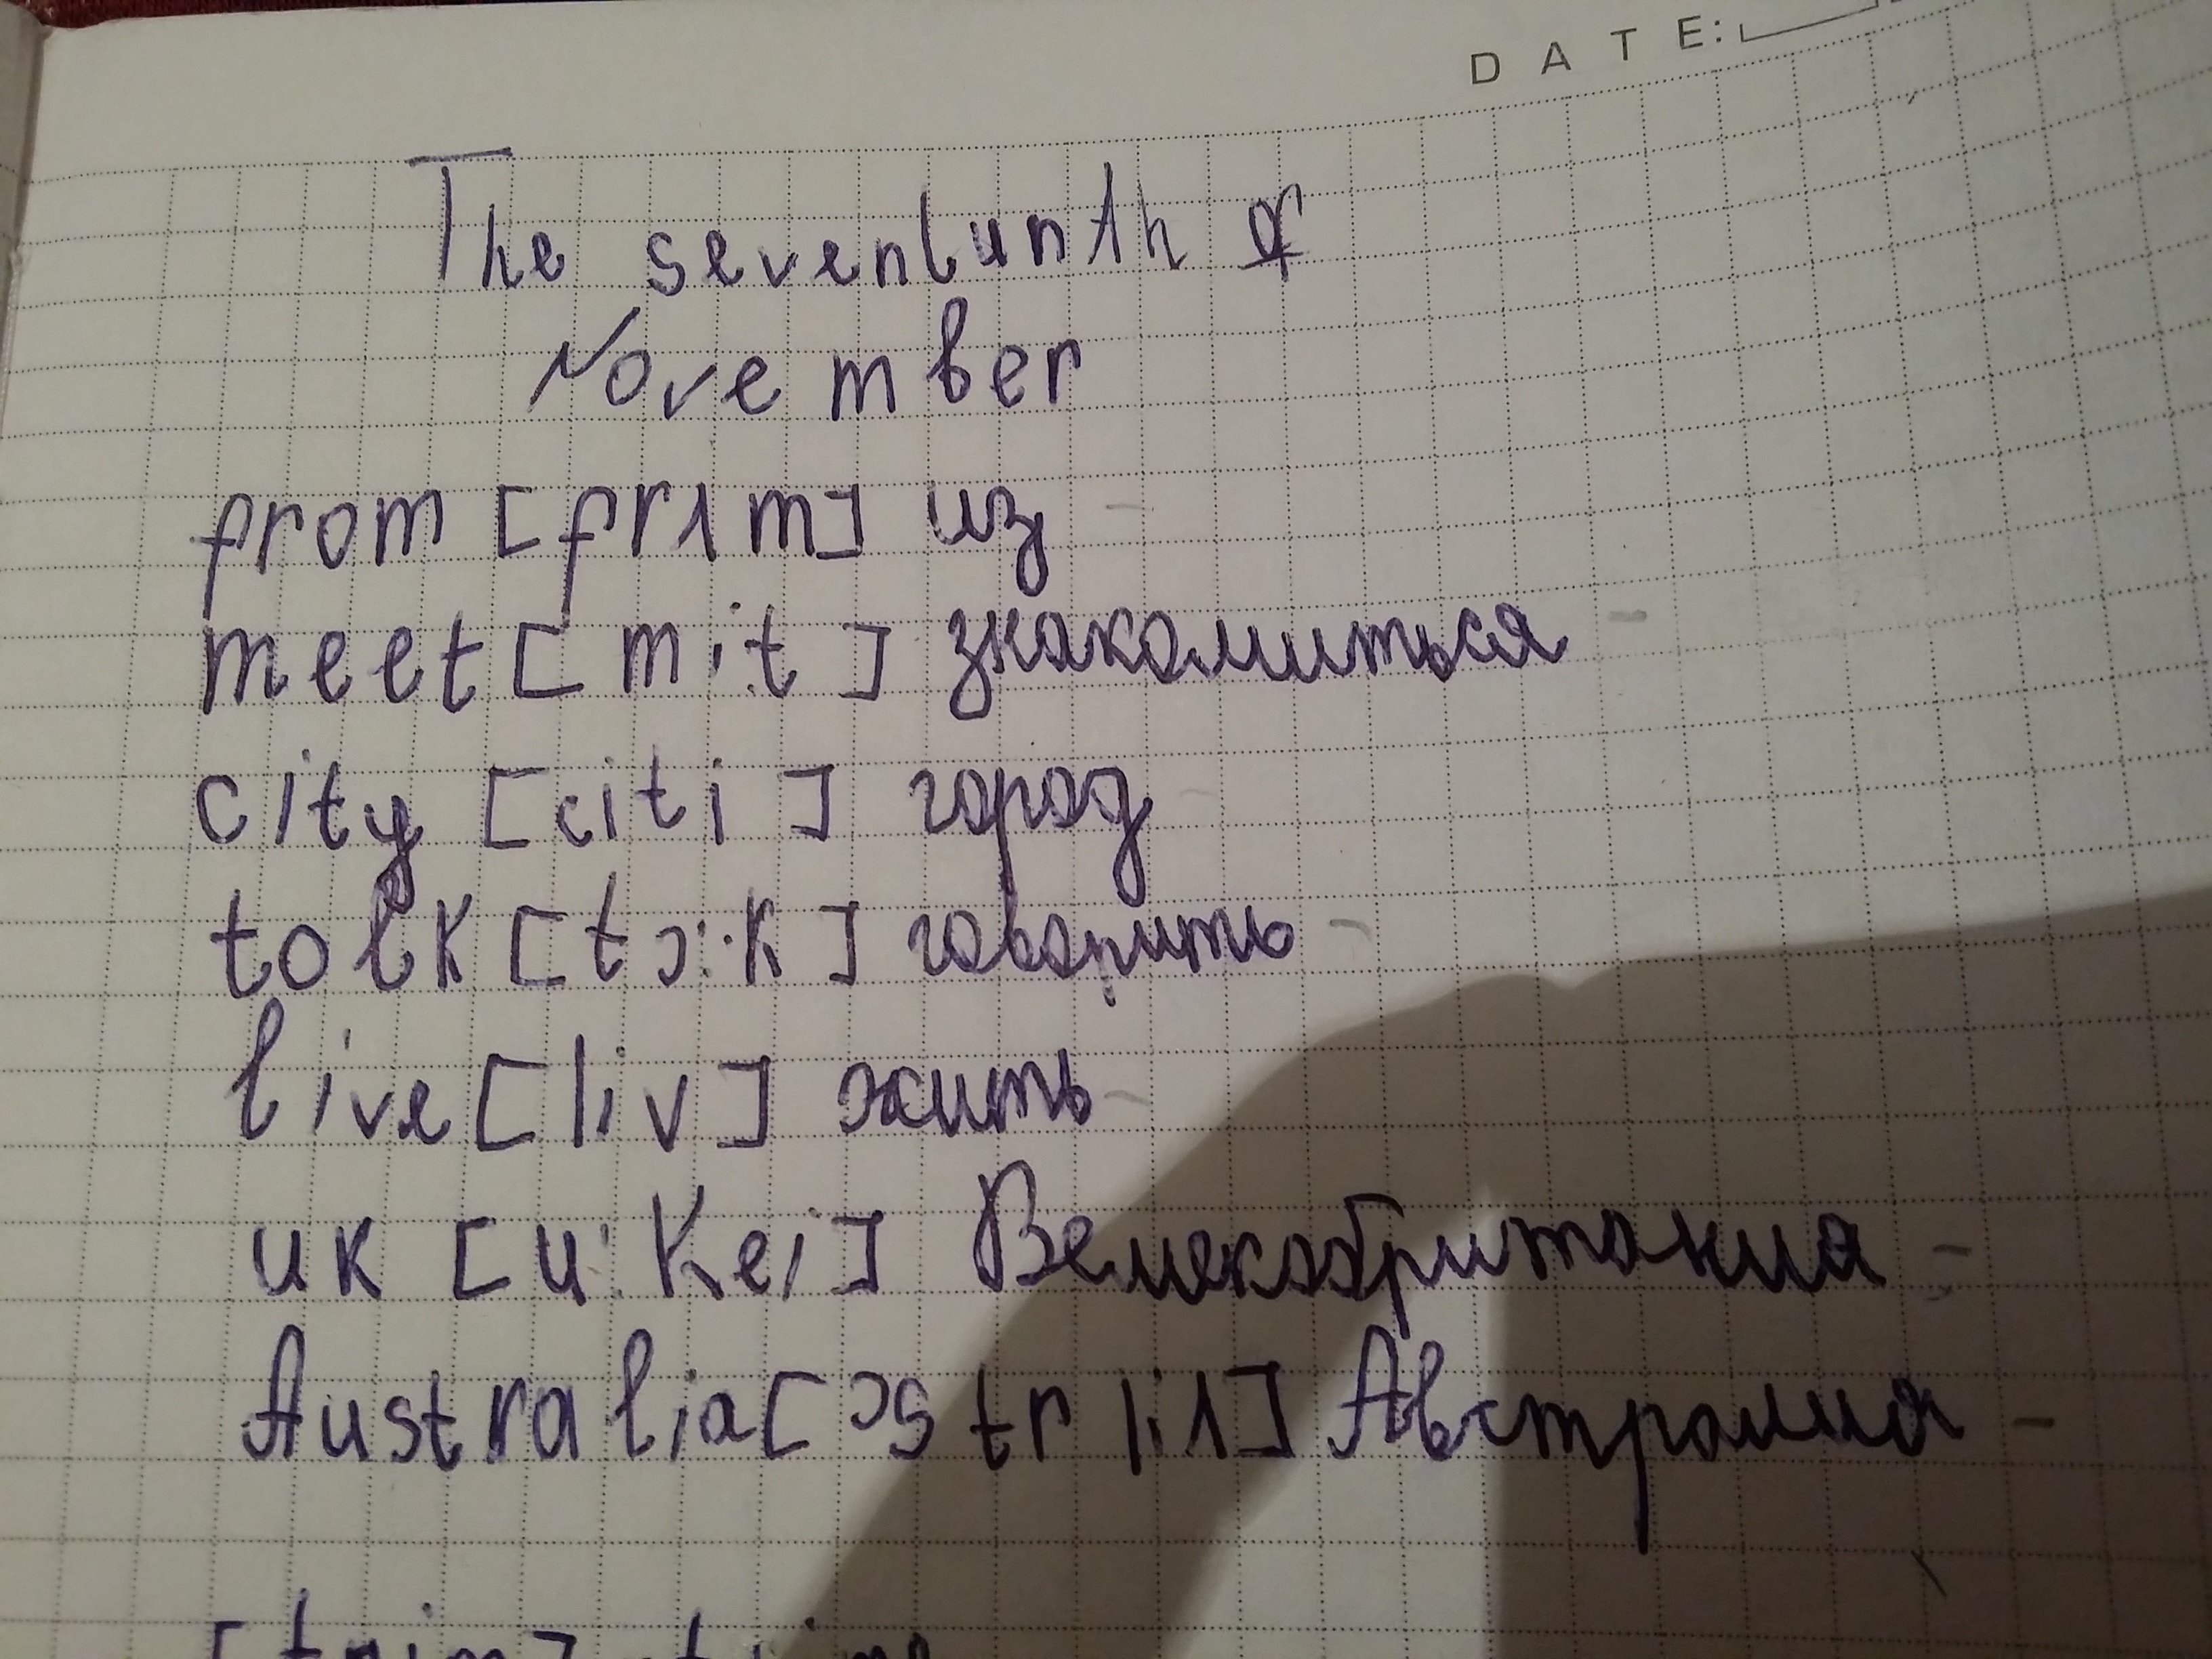 DATE:
The sevenlunth of
November
from [fr1m] из
meet [mit] знакомиться
city [citi] город
tolk [tɔ:k] говорить
live [liv] жить
uk [u:kei] Великобритания
Australia [ɔstrli1] Австралия
[taim] time